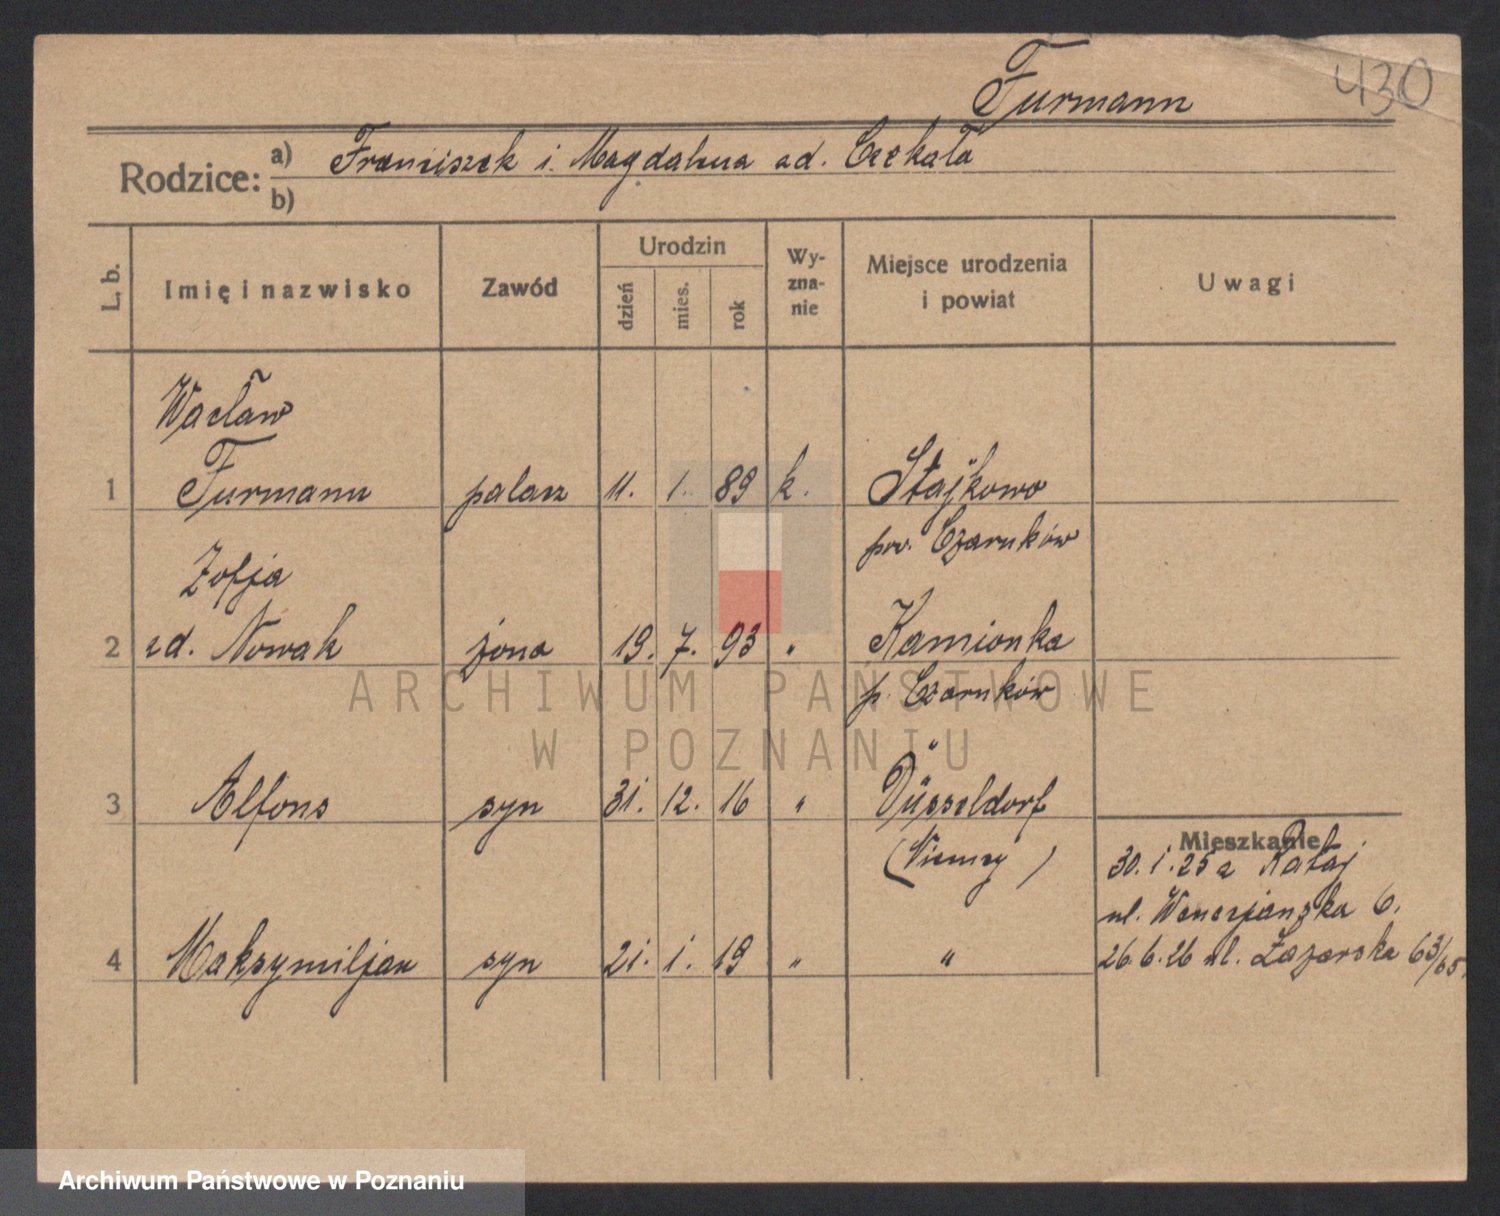 Furmann
430
Rodzice: a) Franciszek i Magdalena zd. Czekała
b)
L. b. Imię i nazwisko Zawód Urodzin dzień mies. rok Wy-zna-nie Miejsce urodzenia i powiat Uwagi
Wacław
1 Furmann palacz 11. 1. 89 k. Stajkowo
pow. Czarnków
Zofja
2 zd. Nowak żona 19. 7. 93 " Kamionka
p. Czarnków
3 Alfons syn 31. 12. 16 " Düsseldorf
(Niemcy)
Mieszkanie
30.1.25 z Rataj
ul. Wenecjańska 6.
4 Maksymiljan syn 21. 1. 19 " "
26.6.26 ul. Łazarska 63/65
ARCHIWUM PAŃSTWOWE
W POZNANIU
Archiwum Państwowe w Poznaniu